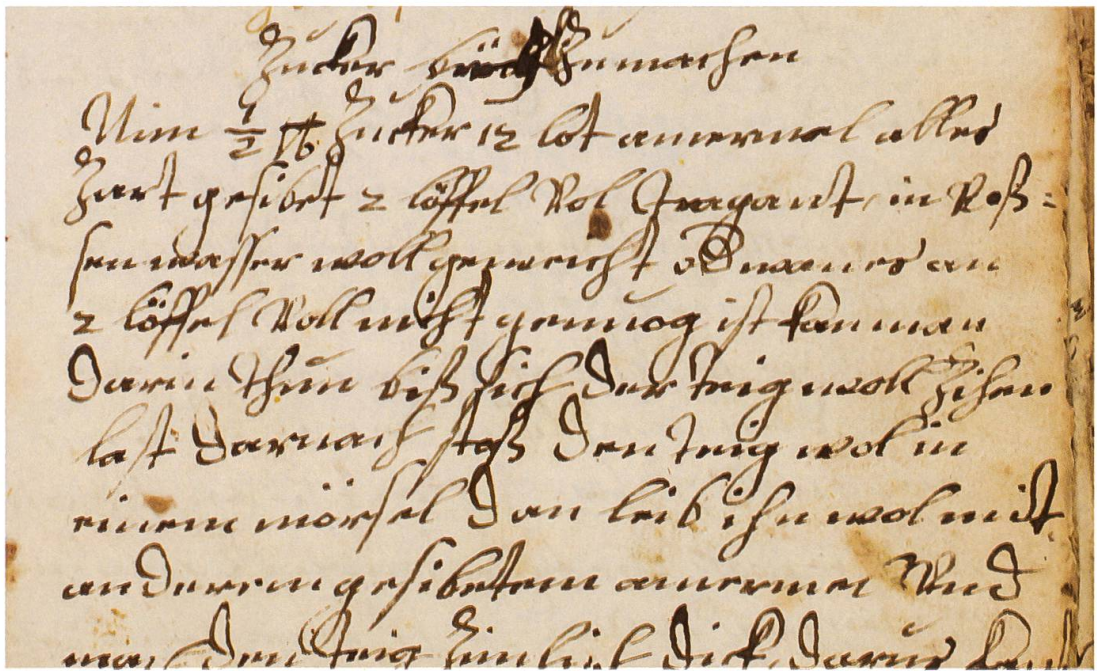 Zucker zumachen
Nim 1/2 ℔ Zucker 12 lot amermel alles
Zart gesibet 2 löffel Vol Tragant, in Roß=
senwasser woll geweicht od wan es an
2 löffel Voll nicht genuog ist kan man
darin Thun biß sich der teig woll Zihen
last darnach stoß den teig wol in
einem mörsel dan leib ihn wol mit
anderem gesibetem amermel Vnd
mach den teig Zimlich dick, darus